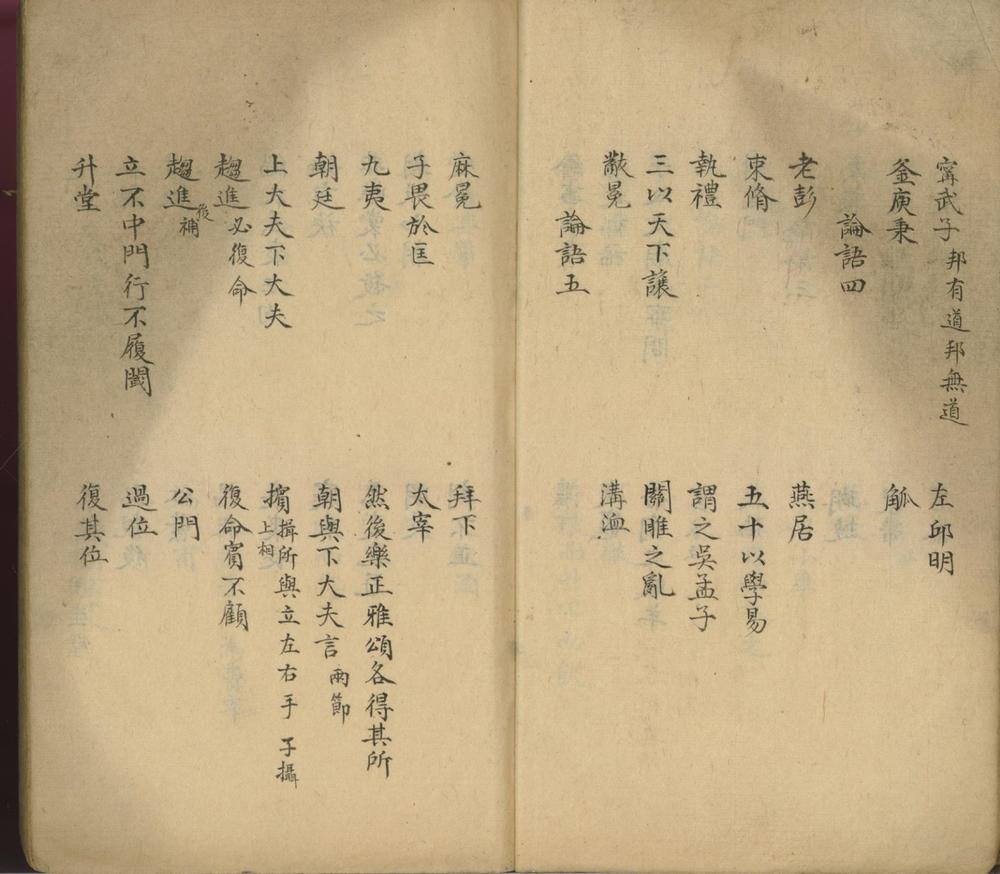 甯武子 邦有道邦無道
左邱明
釜庾秉
觚
論語四
老彭
燕居
束脩
五十以學易
執禮
謂之吳孟子
三以天下讓
關雎之亂
敝冕
溝洫
論語五
麻冕
拜下
子畏於匡
太宰
九夷
然後樂正雅頌各得其所
朝廷
朝與下大夫言 兩節
上大夫下大夫
擯 上相 揖所與立左右手 子攝
趨進必復命
復命賓不顧
趨進 後補
公門
立不中門行不履閾
過位
升堂
復其位